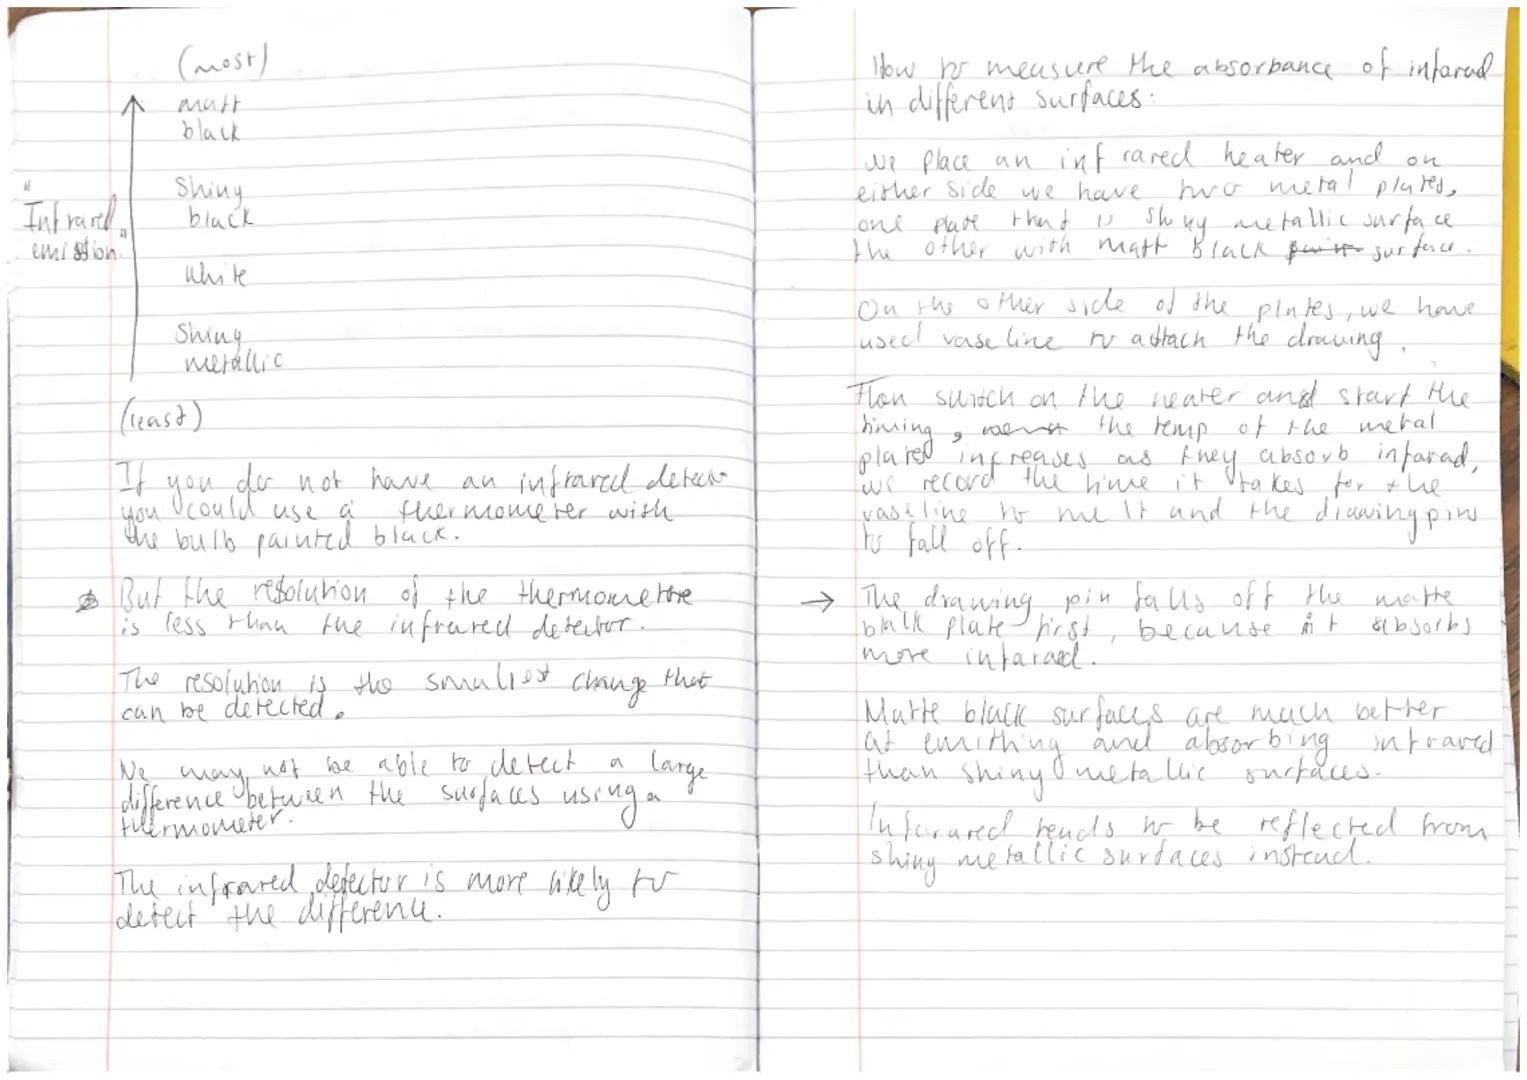 (most)
matt
black
Shiny
black
"Infrared
emission"
White
Shiny
metallic
(least)
If you do not have an infrared detector
you could use a thermometer with
the bulb painted black.
But the resolution of the thermometre
is less than the infrared detector.
The resolution is the smallest change that
can be detected.
We may not be able to detect a large
difference between the surfaces using a
thermometer.
The infrared detector is more likely to
detect the difference.
How to measure the absorbance of infarad
in different surfaces:
We place an infrared heater and on
either side we have two metal plates,
one plate that is shiny metallic surface
the other with matt black surface.
On the other side of the plates, we have
used vaseline to attach the drawing.
Then switch on the heater and start the
timing, the temp of the metal
plates increases as they absorb infarad,
we record the time it takes for the
vaseline to melt and the drawing pins
to fall off.
→ The drawing pin falls off the matte
black plate first, because it absorbs
more infarad.
Matte black surfaces are much better
at emithing and absorbing infrared
than shiny metallic surfaces.
Infarared tends to be reflected from
shiny metallic surfaces instead.